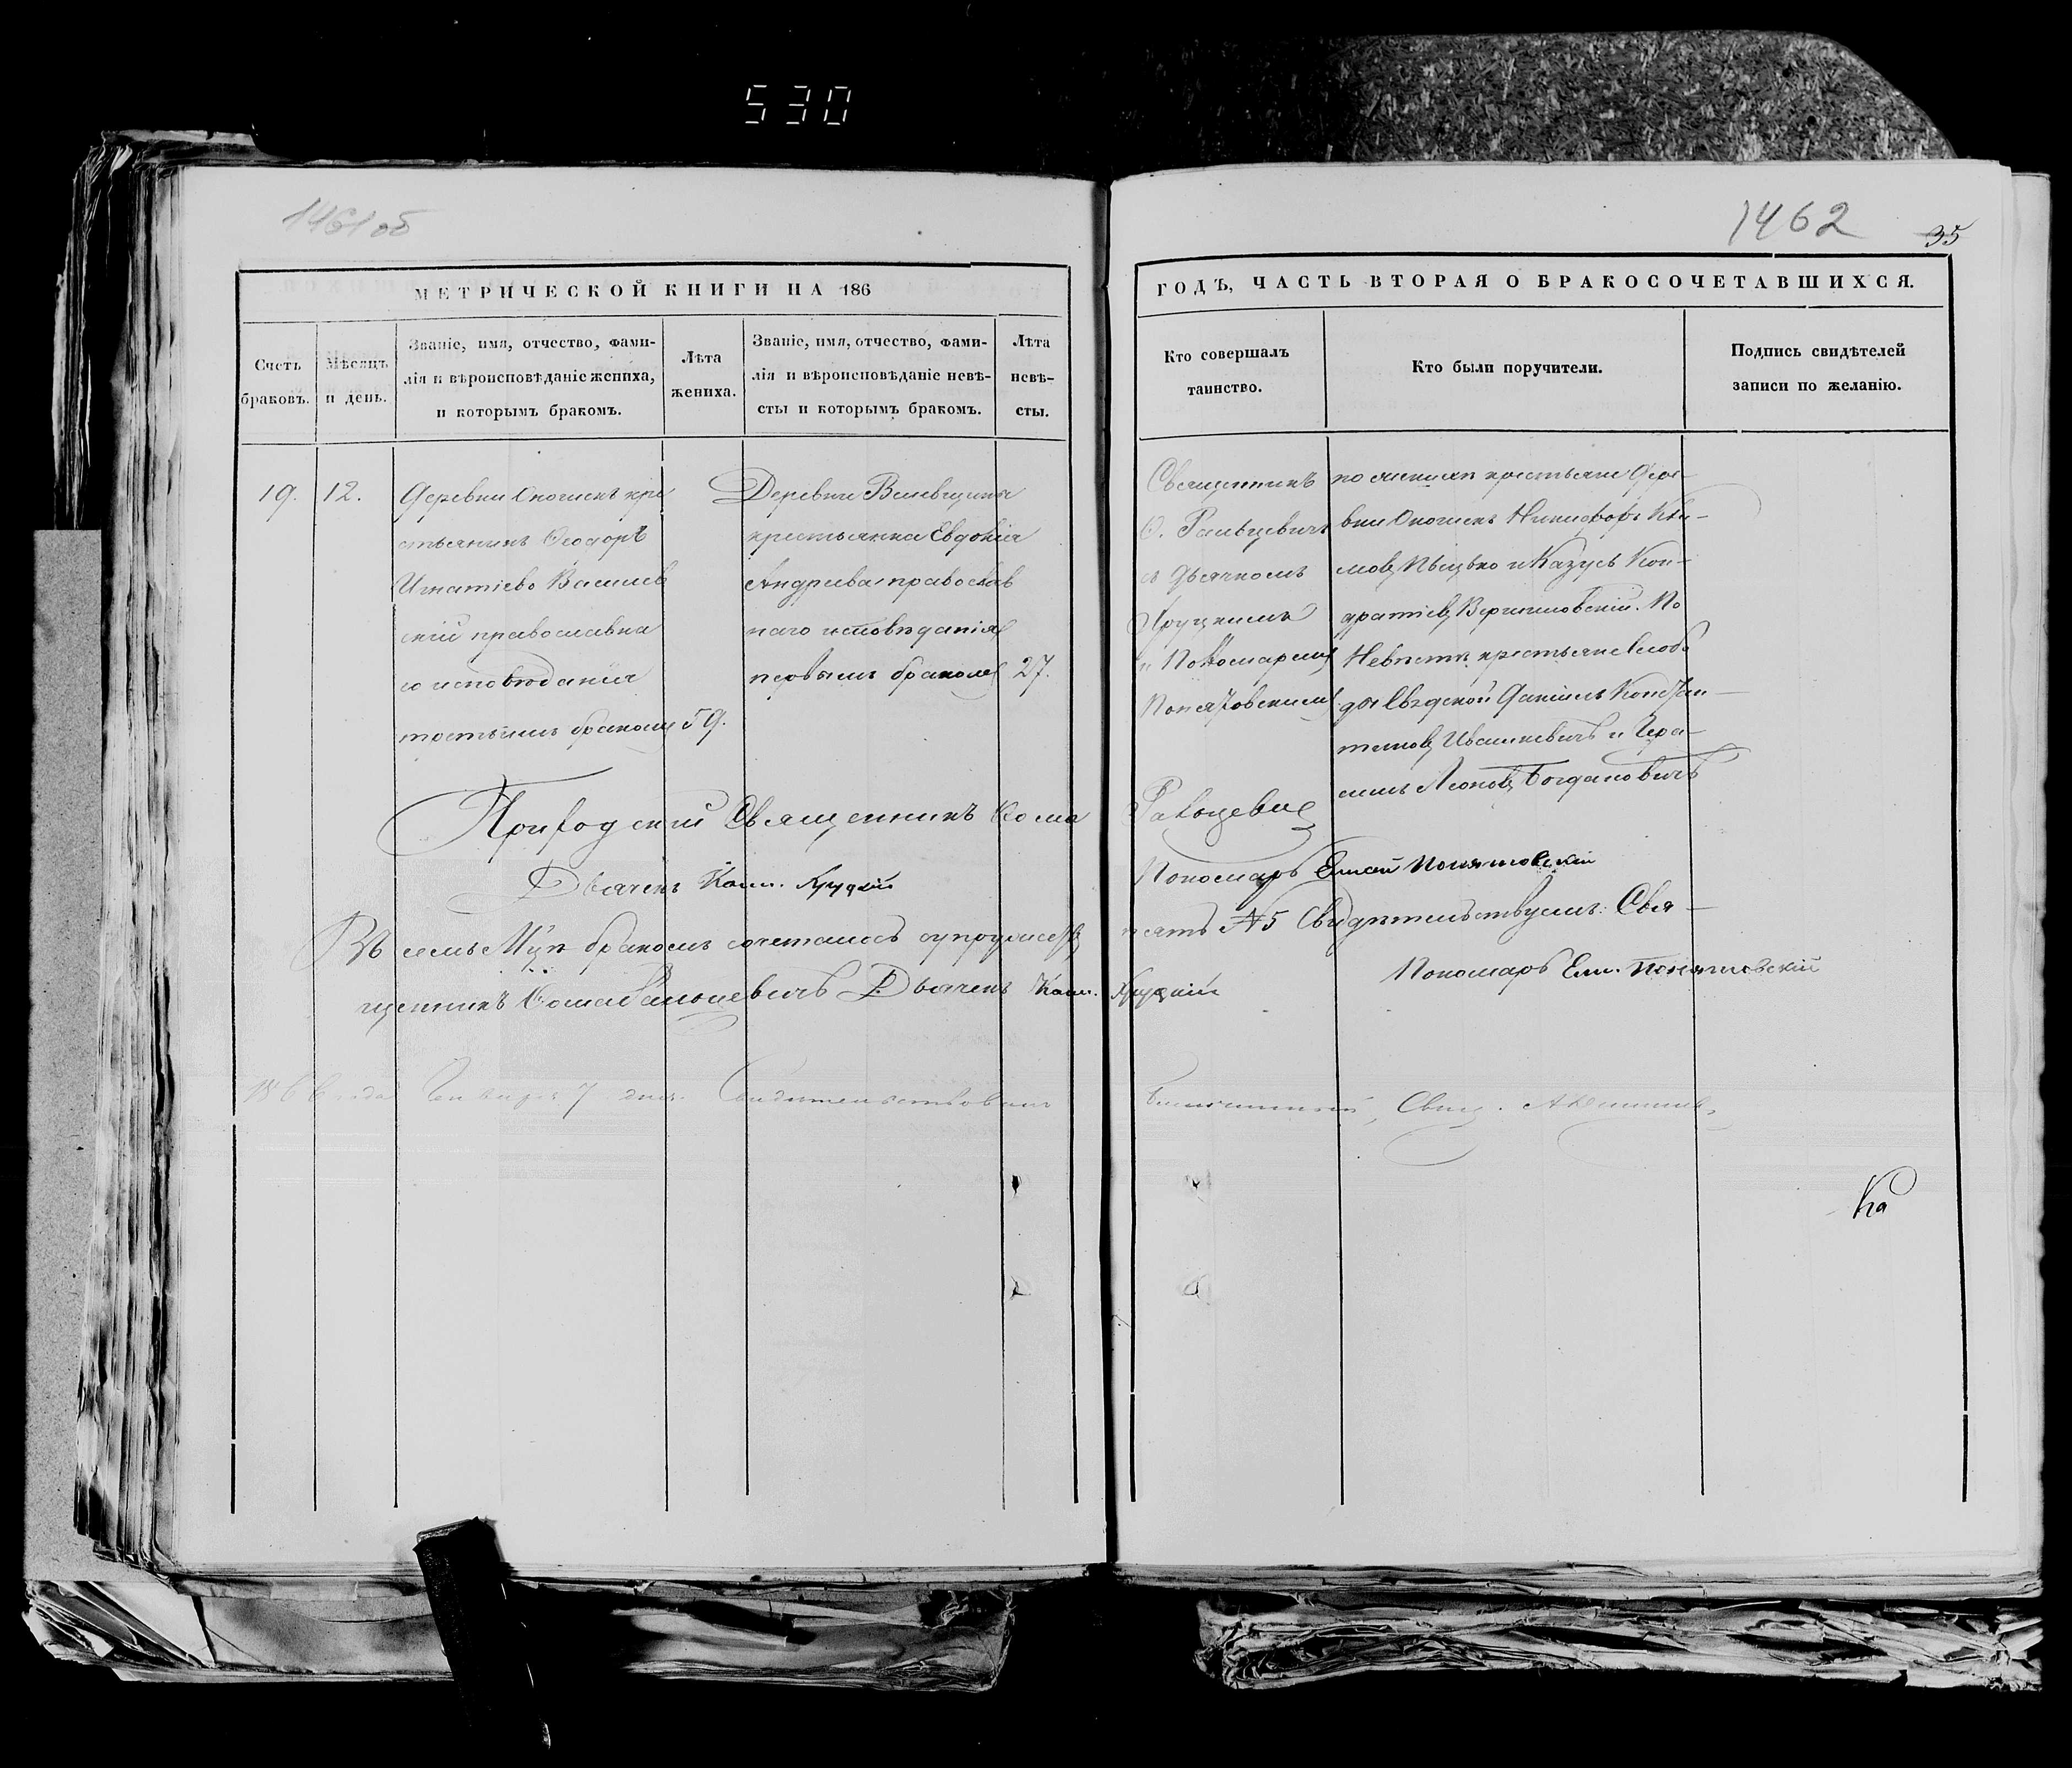 530
1461 об
1462
35
МЕТРИЧЕСКОЙ КНИГИ НА 186
ГОДЪ, ЧАСТЬ ВТОРАЯ О БРАКОСОЧЕТАВШИХСЯ.
Счетъ
браковъ.
Мѣсяцъ
и день.
Званіе, имя, отчество, фами-
лія и вѣроисповѣданіе жениха,
и которымъ бракомъ.
Лѣта
жениха.
Званіе, имя, отчество, фами-
лія и вѣроисповѣданіе невѣ-
сты и которымъ бракомъ.
Лѣта
невѣ-
сты.
Кто совершалъ
таинство.
Кто были поручители.
Подпись свидѣтелей
записи по желанію.
19.
12.
Деревни кре
стьянинъ Ѳеодоръ
Игнатіевъ Василев
скій православна
го исповѣданія
третьимъ бракомъ
59.
Деревни
крестьянка Евдокія
Андреева православ
наго исповѣданія
первымъ бракомъ
27.
Священникъ
Ѳ.
съ дьячкомъ
Хруцкимъ
и Пономаремъ
Понятовскимъ
по женихѣ крестьяне дере-
вни Никифоръ Кли-
мовъ и Казусь Кон-
дратіевъ По
Невѣстѣ крестьяне Слобо
ды Даніилъ Констан-
тиновъ Ивашкевичъ и Гера-
симъ Леоновъ Богдановичъ
Приходскій Священникъ Ѳома
Дьячекъ Хруцкій
Пономарь Понятовскій
Въ семъ М-цѣ бракомъ сочеталось супружествъ
пять №5 Свидѣтельствуемъ: Свя-
щенникъ Ѳома Дьячекъ Хруцкій
Пономарь Ем. Понятовскій
186 года Генваря 7 дня. Свидѣтельствовалъ
Благочинный, Свящ.
Ка